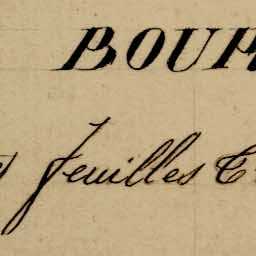 BOUR
feuilles